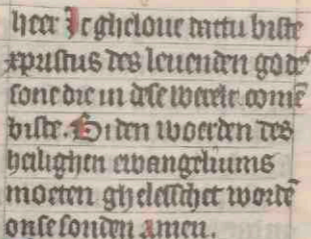 heer Ic gheloue dattu biste
xpristus des leuenden gods
sone die in dese werelt comē
biste. Biden woerden des
heilighen ewangeliums
moeten ghelesschet wordē
onse sonden Amen.